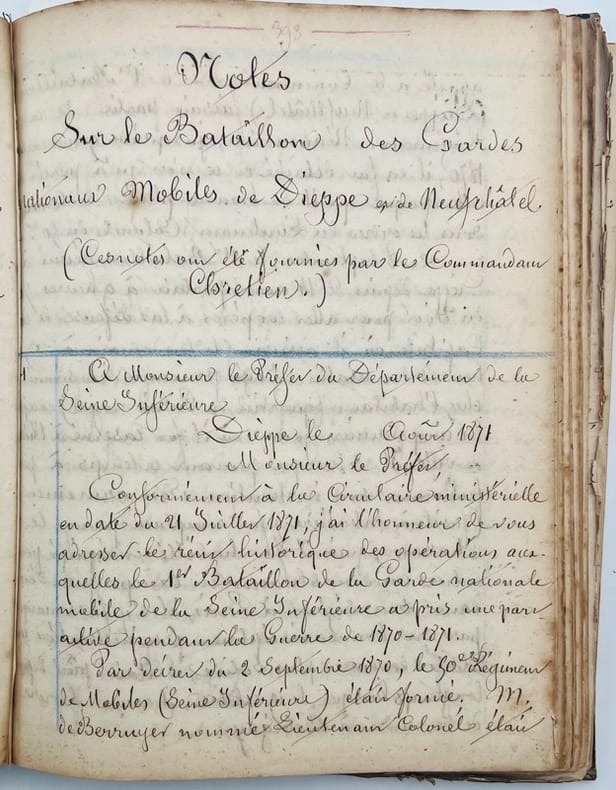 398
Notes
Sur le Bataillon des Gardes
nationaux Mobiles de Dieppe et de Neufchâtel.
(Ces notes ont été fournies par le Commandant
Chretien.)
A Monsieur le Préfet du Département de la
Seine Inférieure
Dieppe le Août 1871
Monsieur le Préfet,
Conformément à la Circulaire ministérielle
en date du 21 Juillet 1871, j'ai l'honneur de vous
adresser le récit historique des opérations aux-
quelles le 1er Bataillon de la Garde nationale
mobile de la Seine Inférieure a pris une part
active pendant la Guerre de 1870-1871.
Par décret du 2 Septembre 1870, le 50e Régiment
de Mobiles (Seine Inférieure) était formé. M.
de Berruyer nommé Lieutenant Colonel était